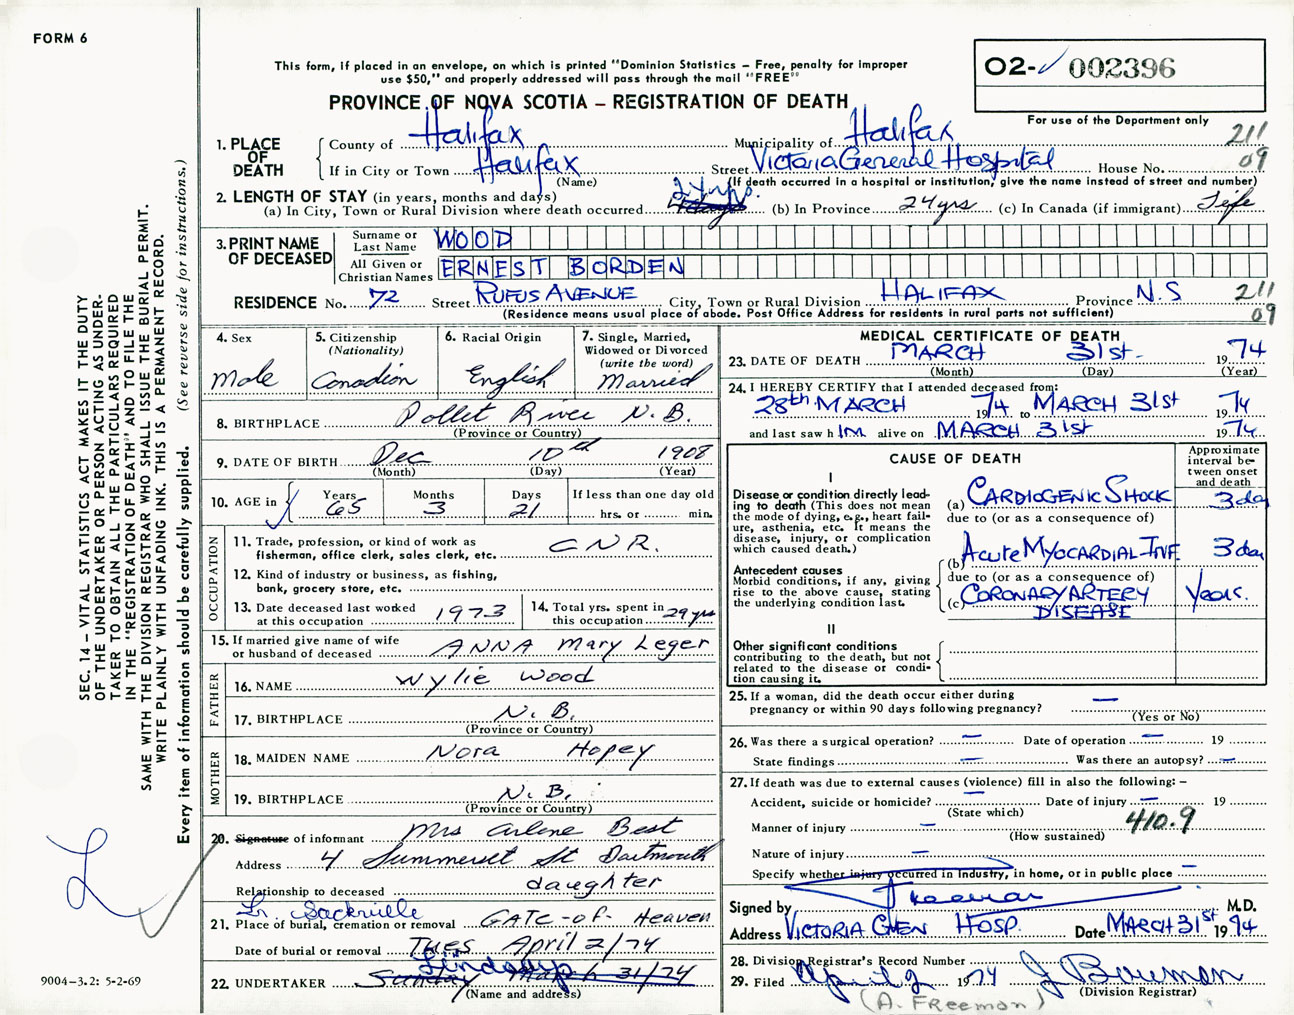 FORM 6
This form, if placed in an envelope, on which is printed "Dominion Statistics – Free, penalty for improper
use $50," and properly addressed will pass through the mail "FREE"
O2- 002396
PROVINCE OF NOVA SCOTIA – REGISTRATION OF DEATH
For use of the Department only
1. PLACE OF DEATH
County of Halifax Municipality of Halifax 211
If in City or Town Halifax Street Victoria General Hospital House No. 09
(Name) (If death occurred in a hospital or institution, give the name instead of street and number)
2. LENGTH OF STAY (in years, months and days)
(a) In City, Town or Rural Division where death occurred 24 yrs. (b) In Province 24 yrs (c) In Canada (if immigrant) Life
3. PRINT NAME OF DECEASED
Surname or Last Name WOOD
All Given or Christian Names ERNEST BORDEN
RESIDENCE No. 72 Street RUFUS AVENUE City, Town or Rural Division HALIFAX Province N.S 211
(Residence means usual place of abode. Post Office Address for residents in rural parts not sufficient) 09
4. Sex
Male
5. Citizenship
(Nationality)
Canadian
6. Racial Origin
English
7. Single, Married,
Widowed or Divorced
(write the word)
Married
8. BIRTHPLACE Pollet River N.B.
(Province or Country)
9. DATE OF BIRTH Dec 10th 1908
(Month) (Day) (Year)
10. AGE in Years 65 Months 3 Days 21 If less than one day old
hrs. or min.
OCCUPATION
11. Trade, profession, or kind of work as
fisherman, office clerk, sales clerk, etc. CNR.
12. Kind of industry or business, as fishing,
bank, grocery store, etc.
13. Date deceased last worked
at this occupation 1973
14. Total yrs. spent in
this occupation 29 yrs
15. If married give name of wife
or husband of deceased ANNA Mary Leger
FATHER
16. NAME Wylie Wood
17. BIRTHPLACE N.B.
(Province or Country)
MOTHER
18. MAIDEN NAME Nora Hopey
19. BIRTHPLACE N.B.
(Province or Country)
20. Signature of informant Mrs Arlene Best
Address 4 Summerset St Dartmouth
Relationship to deceased daughter
Lr. Sackville
21. Place of burial, cremation or removal GATE-of- Heaven
Date of burial or removal Tues April 2/74
Lindsays
22. UNDERTAKER Sunday March 31/74
(Name and address)
MEDICAL CERTIFICATE OF DEATH
23. DATE OF DEATH MARCH 31st 19 74
(Month) (Day) (Year)
24. I HEREBY CERTIFY that I attended deceased from:
28th MARCH 1974 to MARCH 31st 1974
and last saw him alive on MARCH 31st 1974
CAUSE OF DEATH
Approximate
interval be-
tween onset
and death
I
Disease or condition directly lead-
ing to death (This does not mean
the mode of dying, e.g., heart fail-
ure, asthenia, etc. It means the
disease, injury, or complication
which caused death.)
(a) CARDIOGENIC SHOCK 3 day
due to (or as a consequence of)
(b) Acute MYOCARDIAL INF 3 day
Antecedent causes
Morbid conditions, if any, giving
rise to the above cause, stating
the underlying condition last.
due to (or as a consequence of)
(c) CORONARY ARTERY DISEASE years.
II
Other significant conditions
contributing to the death, but not
related to the disease or condi-
tion causing it.
25. If a woman, did the death occur either during
pregnancy or within 90 days following pregnancy? —
(Yes or No)
26. Was there a surgical operation? — Date of operation — 19
State findings — Was there an autopsy? —
27. If death was due to external causes (violence) fill in also the following: –
Accident, suicide or homicide? — Date of injury — 19
(State which)
Manner of injury — 410.9
(How sustained)
Nature of injury —
Specify whether injury occurred in industry, in home, or in public place —
Signed by Freeman M.D.
Address VICTORIA GEN HOSP. Date MARCH 31st 1974
28. Division Registrar's Record Number
29. Filed April 2 1974 J Bowman
(Division Registrar)
(A. FREEMAN)
SEC. 14 – VITAL STATISTICS ACT MAKES IT THE DUTY
OF THE UNDERTAKER OR PERSON ACTING AS UNDER-
TAKER TO OBTAIN ALL THE PARTICULARS REQUIRED
IN THE "REGISTRATION OF DEATH" AND TO FILE THE
SAME WITH THE DIVISION REGISTRAR WHO SHALL ISSUE THE BURIAL PERMIT.
WRITE PLAINLY WITH UNFADING INK. THIS IS A PERMANENT RECORD.
Every item of information should be carefully supplied. (See reverse side for instructions.)
9004-3.2: 5-2-69